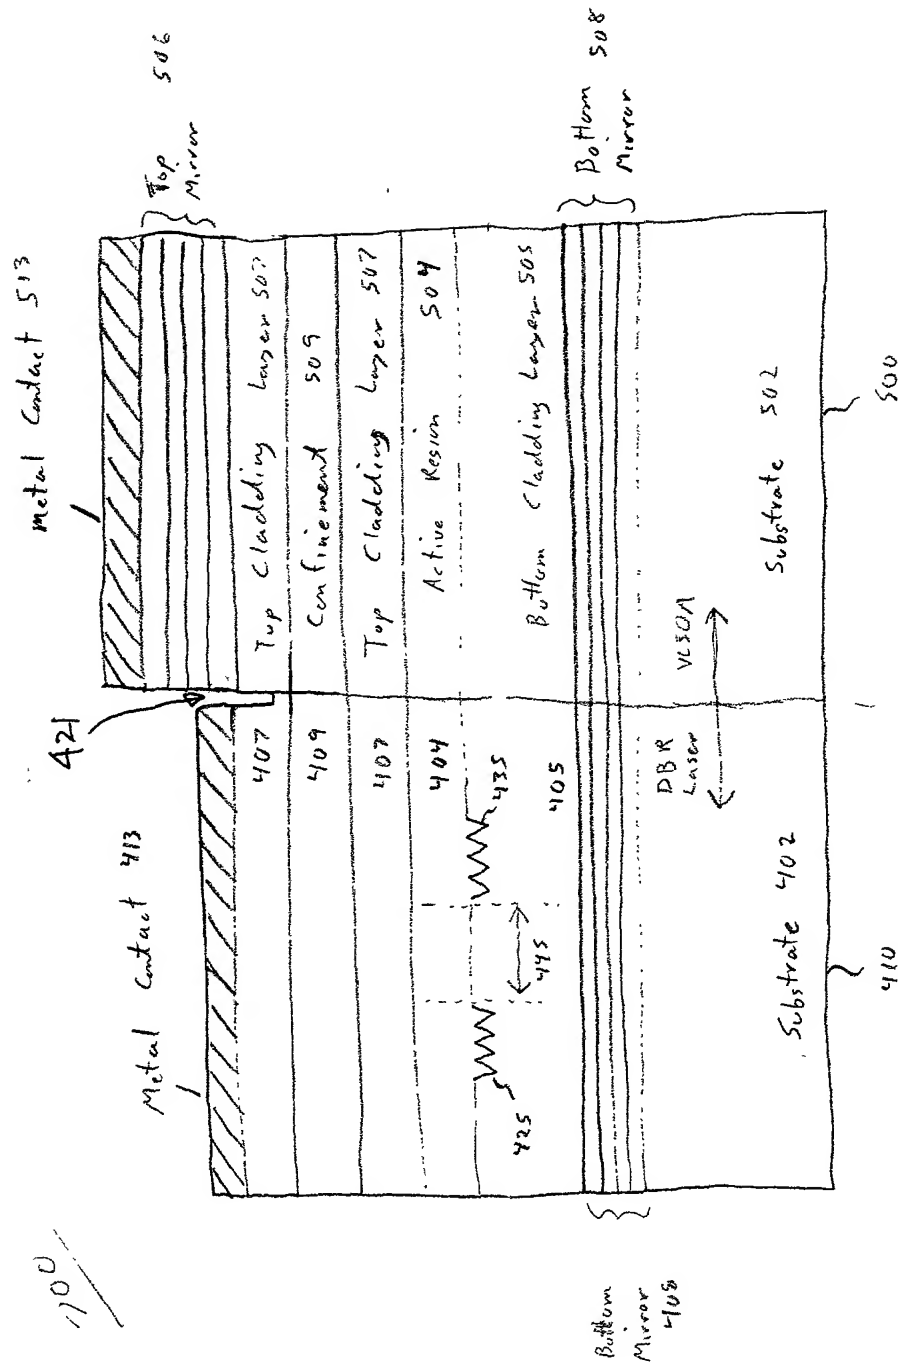 1100
Metal Contact 413
Metal Contact 513
421
Top
Mirror
506
407
Top Cladding Layer 507
409
Confinement 509
407
Top Cladding Layer 507
404
Active Region 504
425
435
445
405
Bottom Cladding Layer 505
Bottom
Mirror
408
Bottom
Mirror
508
DBR
Laser
VCSOA
Substrate 402
Substrate 502
410
500